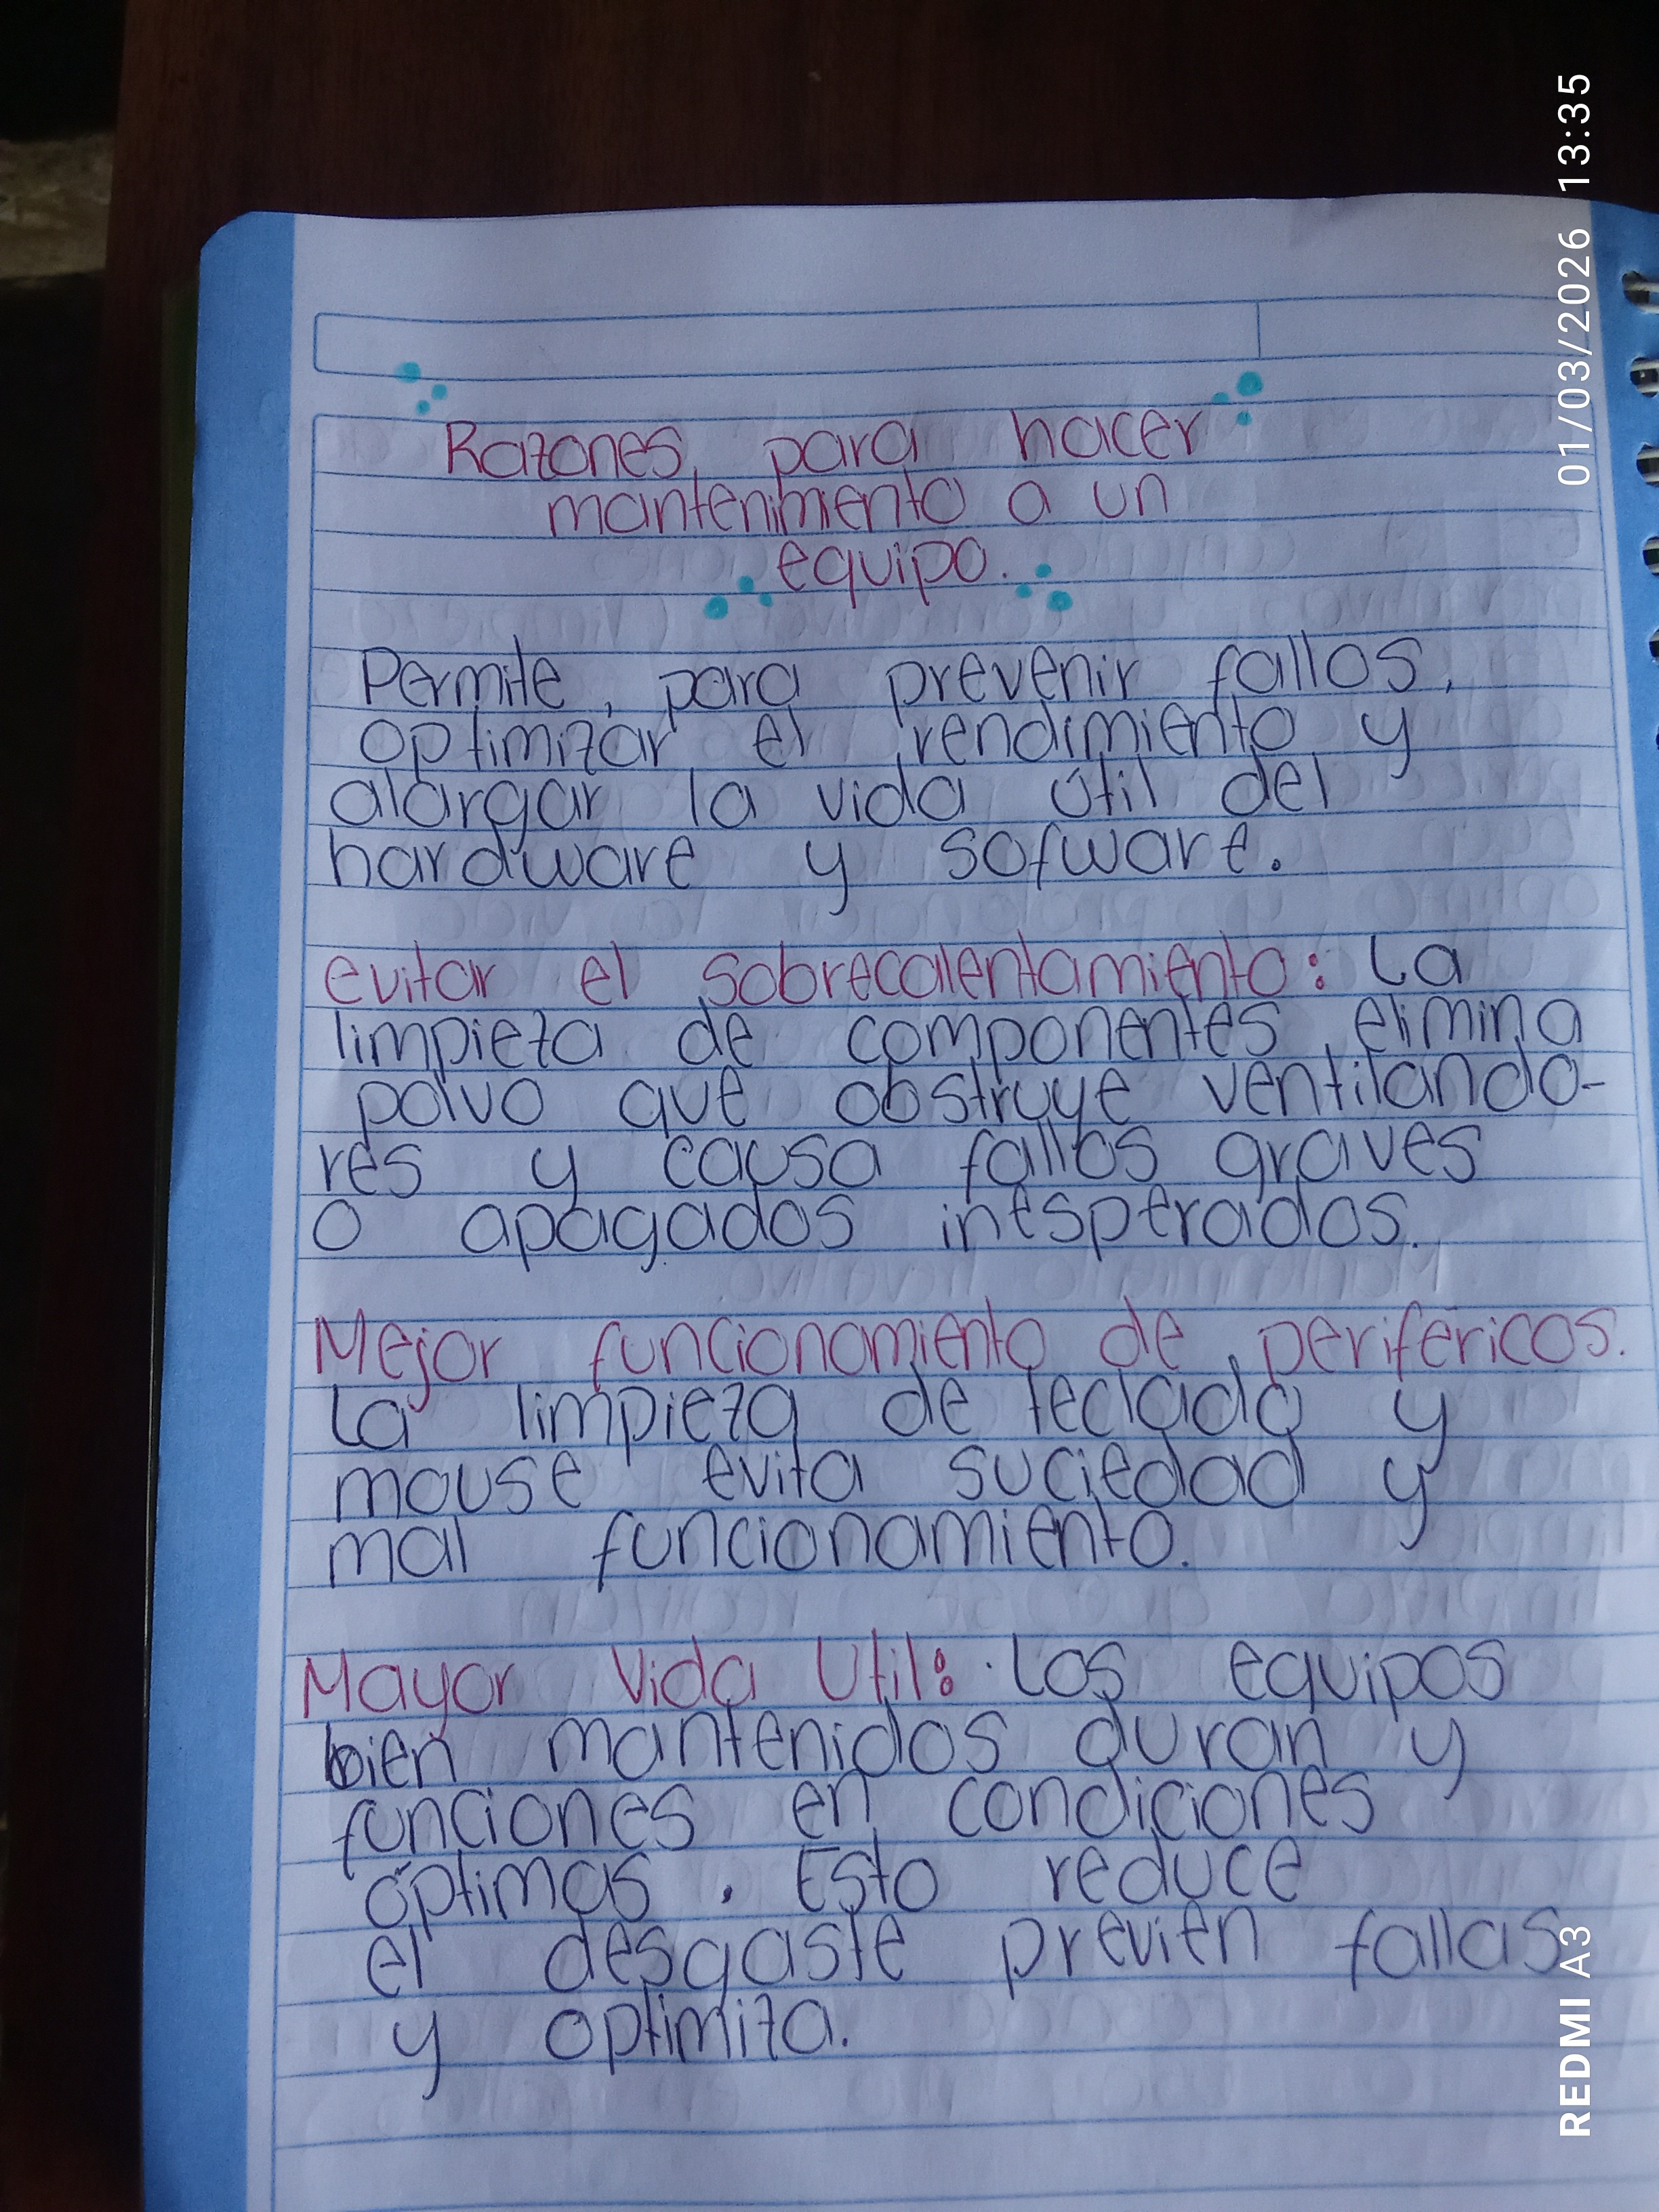 Razones para hacer
mantenimiento a un
equipo.
Permite, para prevenir fallos,
optimizar el rendimiento y
alargar la vida útil del
hardware y sofware.
evitar el sobrecalentamiento: La
limpieza de componentes elimina
polvo que obstruye ventilando-
res y causa fallos graves
o apagados inesperados.
Mejor funcionamiento de periféricos.
La limpieza de teclado y
mouse evita suciedad y
mal funcionamiento.
Mayor Vida Util: Los equipos
bien mantenidos duran y
funciones en condiciones
óptimas. Esto reduce
el desgaste previen fallas
y optimiza.
01/03/2026 13:35
REDMI A3